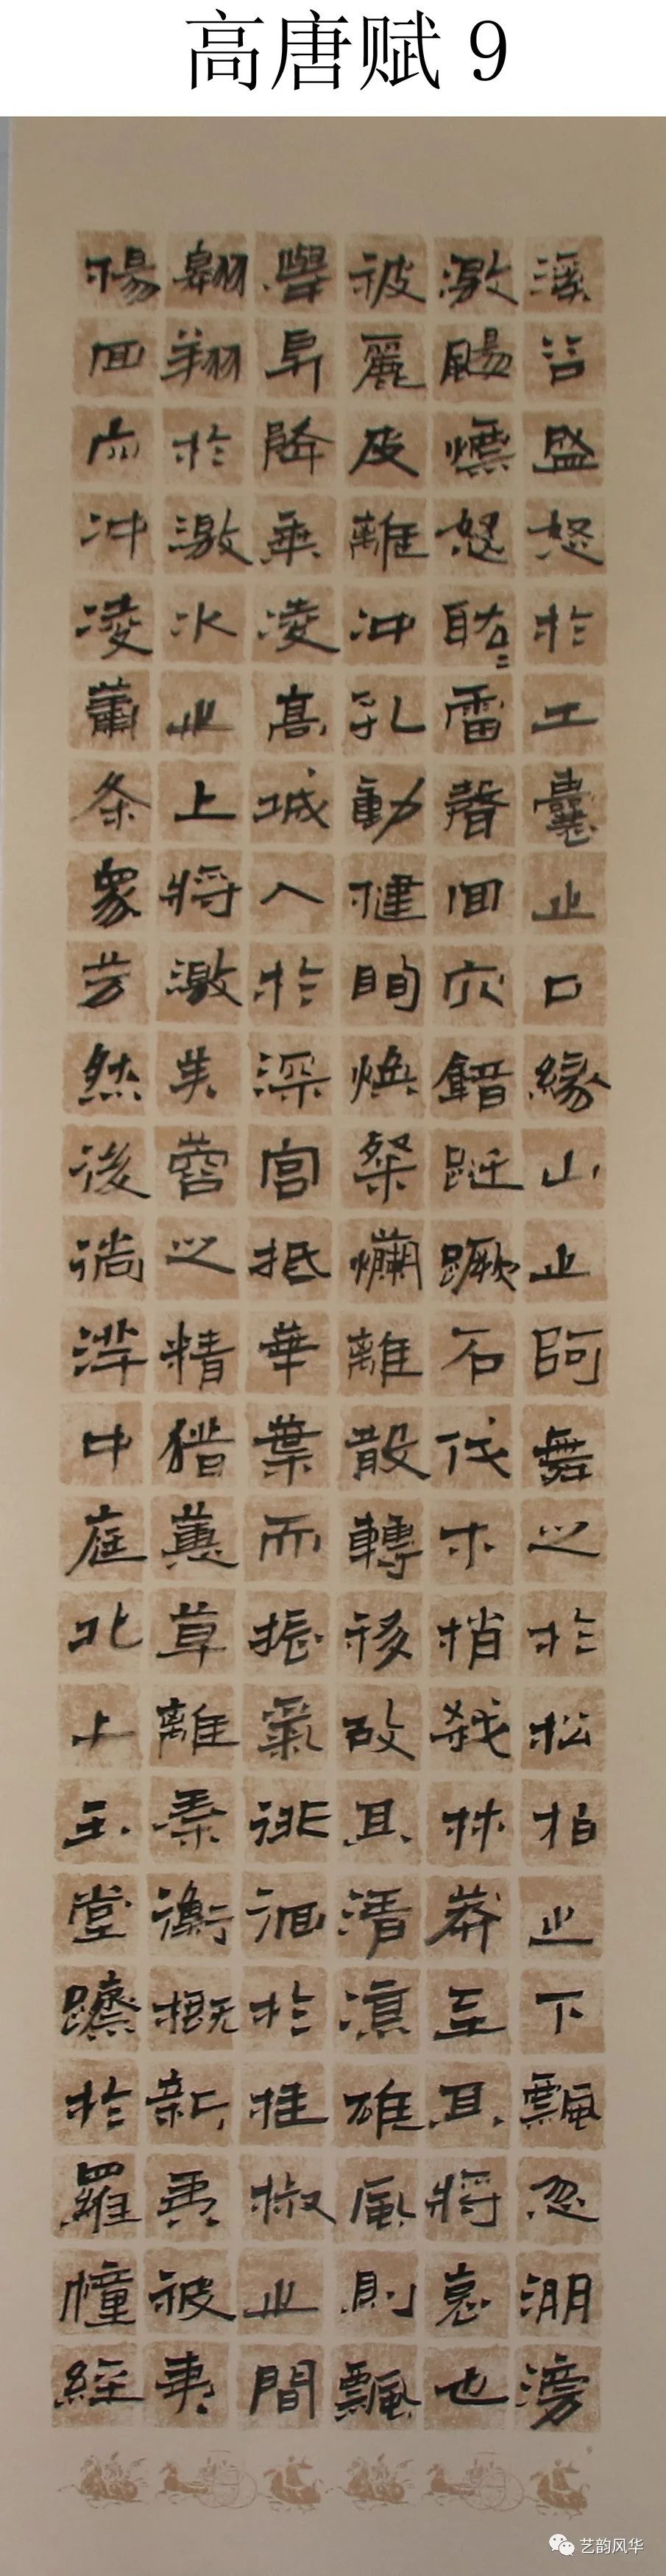 高唐赋 9
溪谷盛怒於土囊之口緣山之阿舞之於松柏之下飄忽淜滂
激颺熛怒耾=雷聲回穴錯迕蹶石伐木梢殺林莽至其將衰也
被麗披離冲孔動楗眴煥粲爛離散轉移故其清涼雄風則飄
舉升降乘凌高城入於深宮抵華葉而振氣徘徊於桂椒之間
翱翔於激水之上將激芙蓉之精獵蕙草離秦衡概新夷被荑
楊回穴冲凌蕭条眾芳然後徜徉中庭北上玉堂躋於羅幢經
艺韵风华